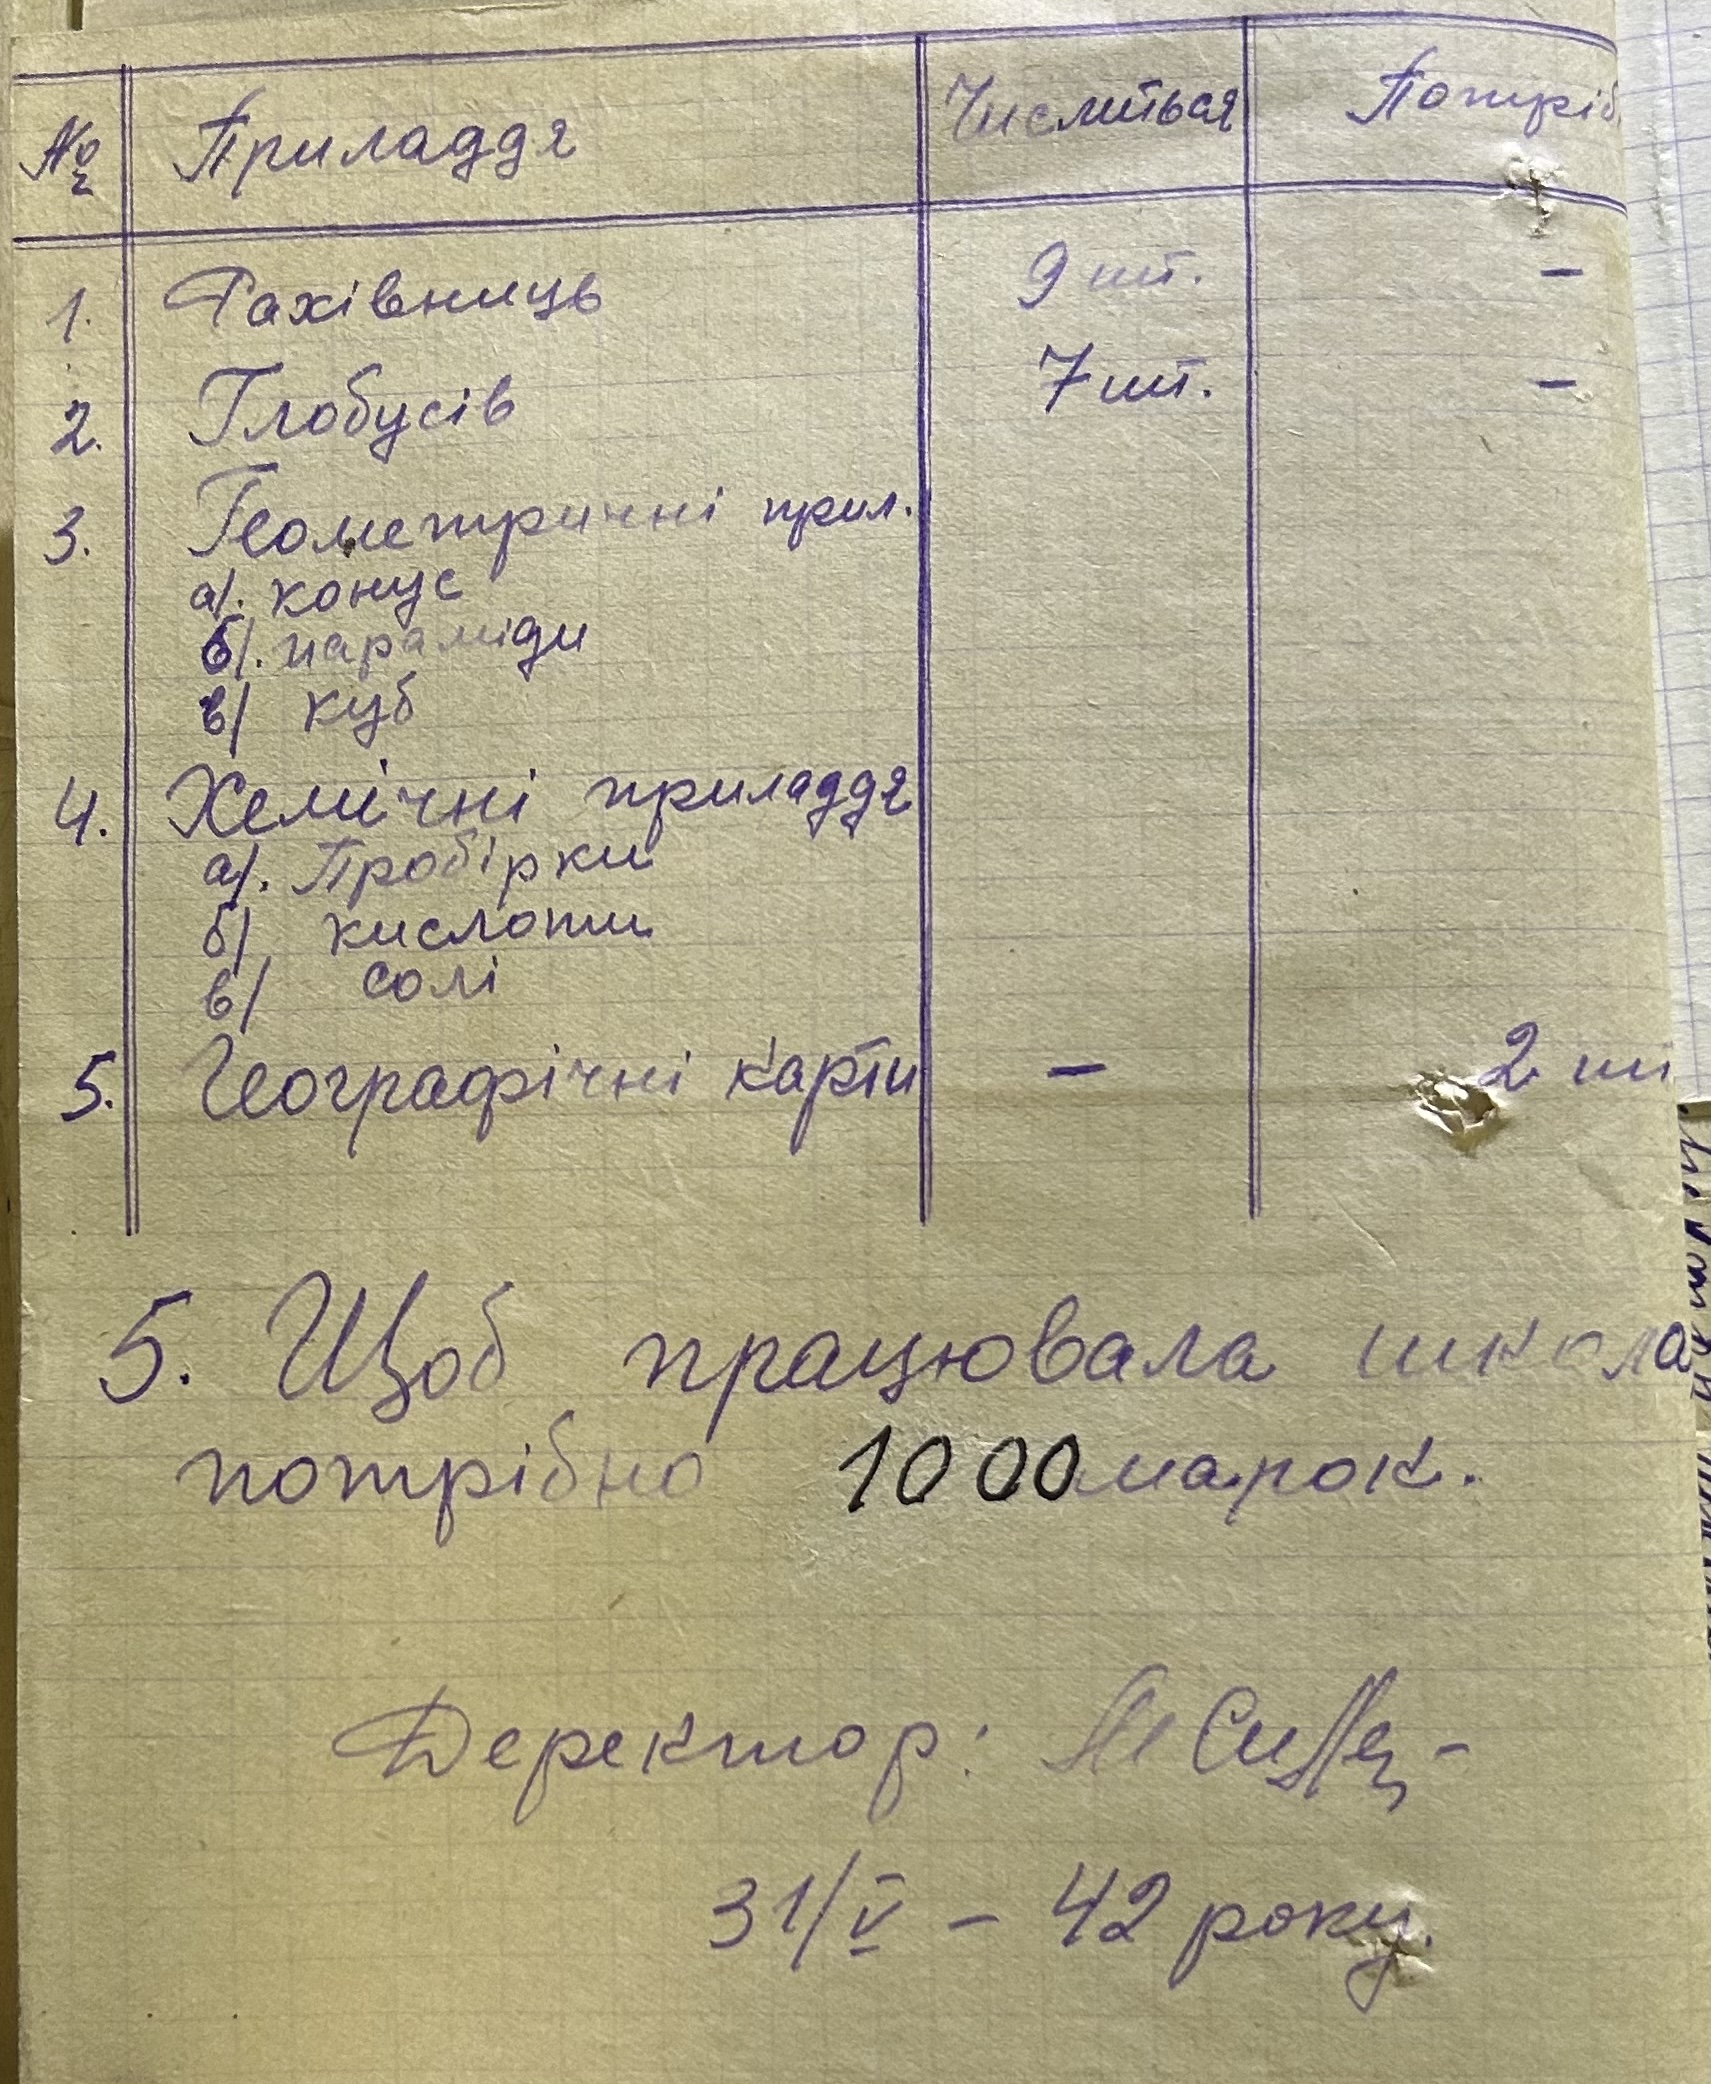 № Приладдя Числиться Потріб
1. Рахівниць 9 шт. –
2. Глобусів 7 шт. –
3. Геометричні прил.
а). конус
б). параміди
в) куб
4. Хемічні приладдя
а). Пробірки
б) кислоти
в) солі
5. Географічні карти – 2 шт
5. Щоб працювала школа
потрібно 1000 марок.
Деректор:
31/V – 42 року.